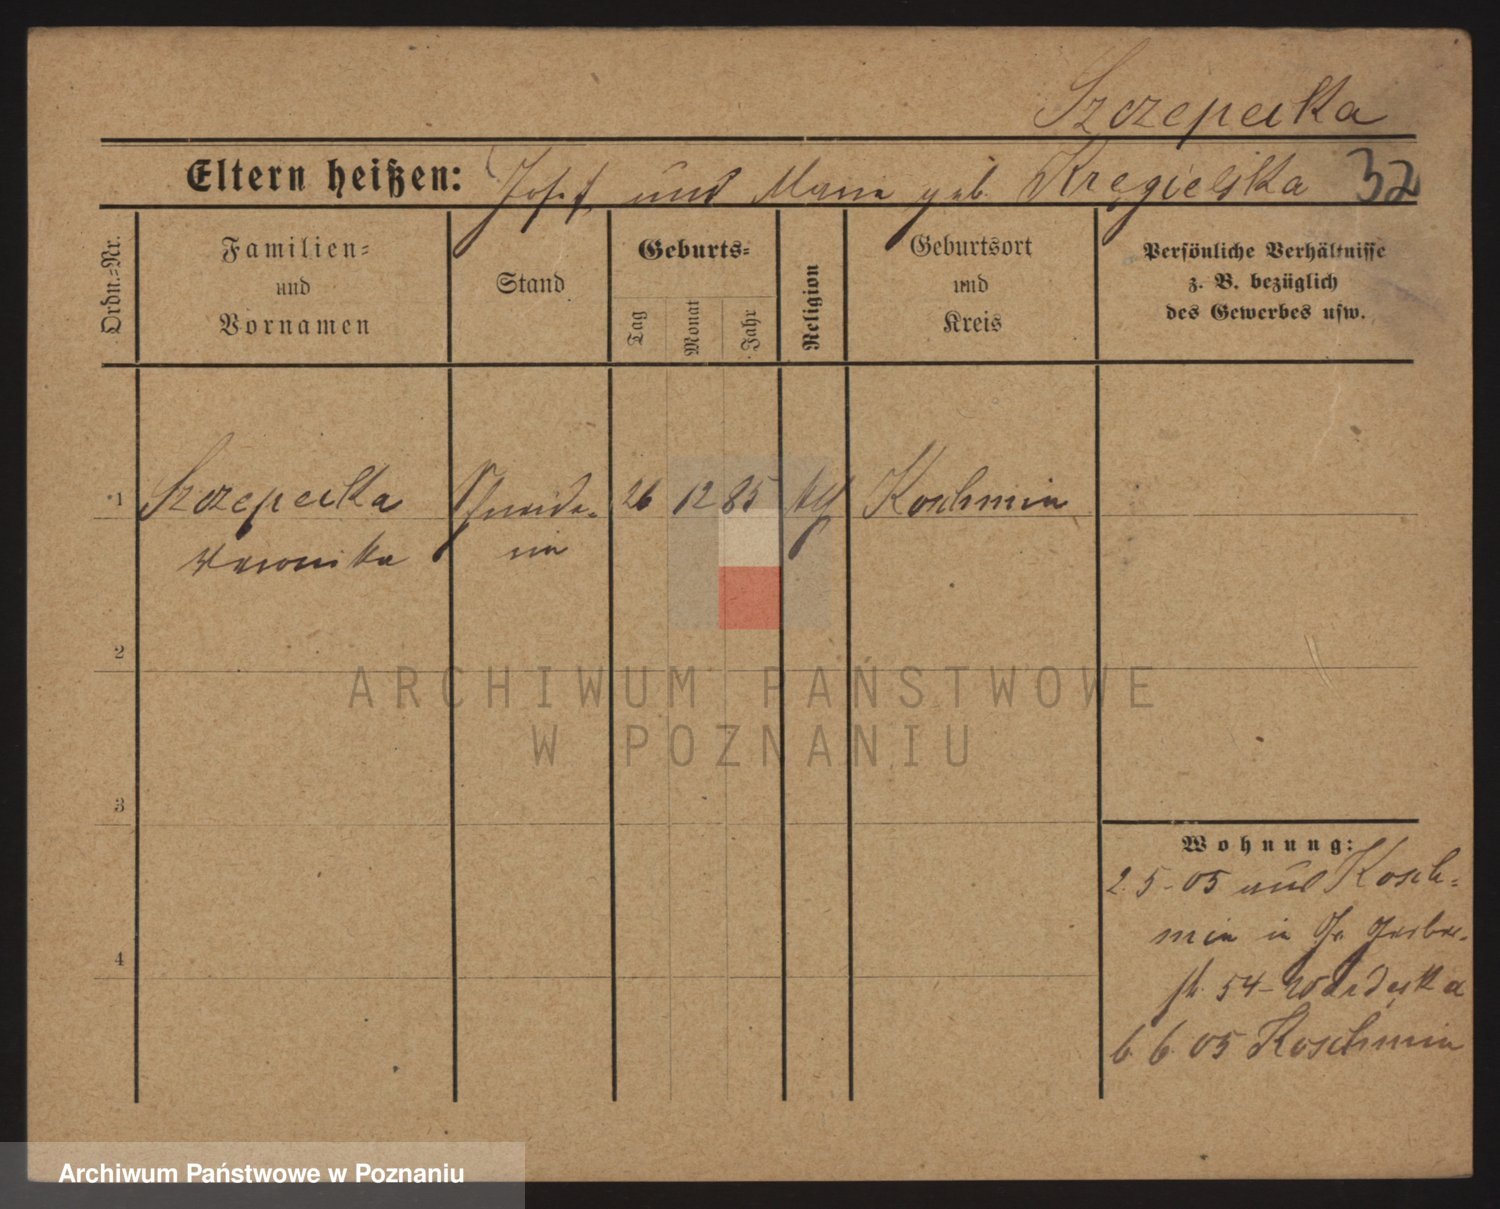 Szczepecka
Eltern heißen: Josef und Maria geb. Kręgielska 32
Ordn.-Nr.
Familien-
und
Vornamen
Stand
Geburts-
Tag
Monat
Jahr
Religion
Geburtsort
und
Kreis
Persönliche Verhältnisse
z. B. bezüglich
des Gewerbes usw.
1 Szczepecka Schneide- 26 12 85 kth Koschmin
Veronika rin
2
3
4
Wohnung:
2. 5 - 05 aus Kosch-
min in
54 -
6. 6. 05 Koschmin
ARCHIWUM PAŃSTWOWE
W POZNANIU
Archiwum Państwowe w Poznaniu